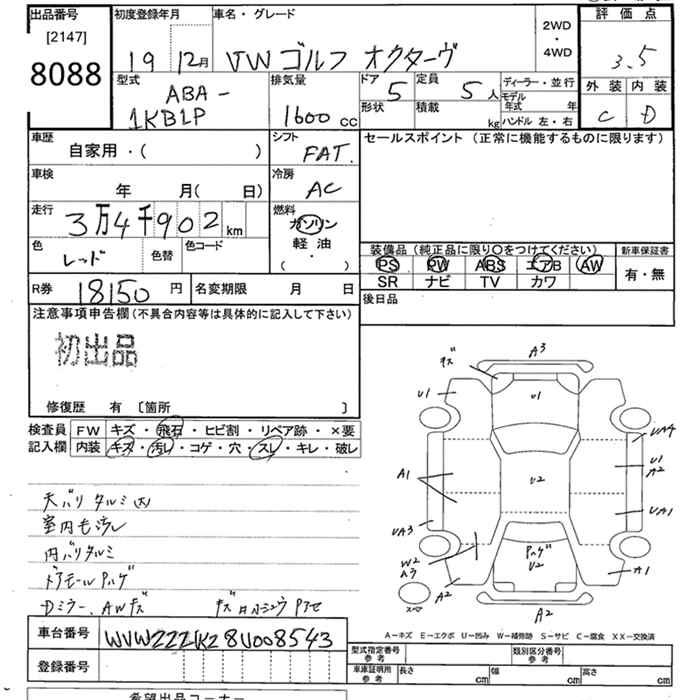 出品番号
[2147]
8088
初度登録年月
19 12月
車名・グレード
VW ゴルフ オクターヴ
2WD
・
4WD
評価点
3.5
外装 内装
C D
型式
ABA-
1KBLP
排気量
1600 cc
ドア 5
定員 5 人
形状
積載 kg
ディーラー・並行
モデル
年式 年
ハンドル 左・右
車歴
自家用・( )
シフト
FAT.
セールスポイント (正常に機能するものに限ります)
車検
年 月( 日)
冷房
AC
走行
3万4千902km
燃料
ガソリン
軽油
・
( )
色
レッド
色替
色コード
装備品 (純正品に限り○をつけてください)
PS PW ABS エアB AW
SR ナビ TV カワ
新車保証書
有・無
R券 18150 円
名変期限 月 日
後日品
注意事項申告欄(不具合内容等は具体的に記入して下さい)
初出品
修復歴 有 〔箇所 〕
検査員
記入欄
FW キズ・飛石・ヒビ割・リペア跡・×要
内装 キズ・汚レ・コゲ・穴・スレ・キレ・破レ
天バリタルミ(大)
室内モ汚レ
内バリタルミ
ドアモールハゲ
Dミラー、AWキズ
キズ
A3
U1
U1
UA4
U1
A2
A1
U2
UA1
UA3
W2
A3
A2
ハゲ
U2
A1
A2
スペア
A-キズ E-エクボ U-凹み W-補修跡 S-サビ C-腐食 XX-交換済
車台番号
WVWZZZ1KZ8U008543
登録番号
型式指定番号
参考
類別区分番号
参考
車庫証明用
参考
長さ cm
幅 cm
高さ cm
希望出品コーナー